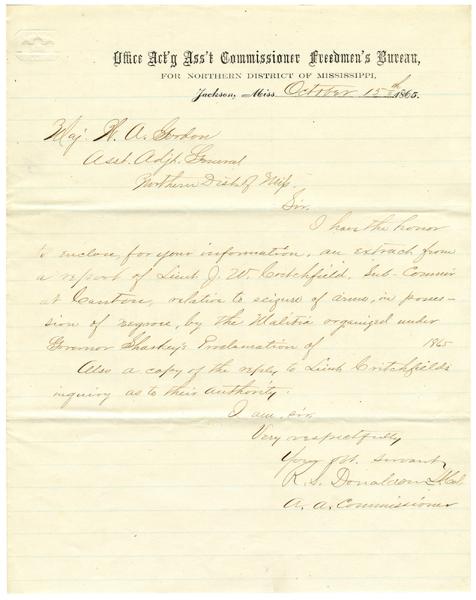 Office Act'g Ass't Commissioner Freedmen's Bureau,
FOR NORTHERN DISTRICT OF MISSISSIPPI,
Jackson, Miss. October 15th 1865.
Maj. W. A. Gordon
Asst. Adjt. General
Northern Dist of Miss.
Sir.
I have the honor
to enclose, for your information, an extract from
a report of Lieut J. W. Critchfield, Sub-Commr
at Canton, relative to seizure of arms, in posses-
sion of negroes, by the Malitia organized under
Governor Sharkey's Proclamation of 1865
Also a copy of the reply to Lieut Critchfield's
inquiry as to their authority.
I am, sir,
Very respectfully
Your obt. servant,
R. S. Donaldson
A. A. Commissioner